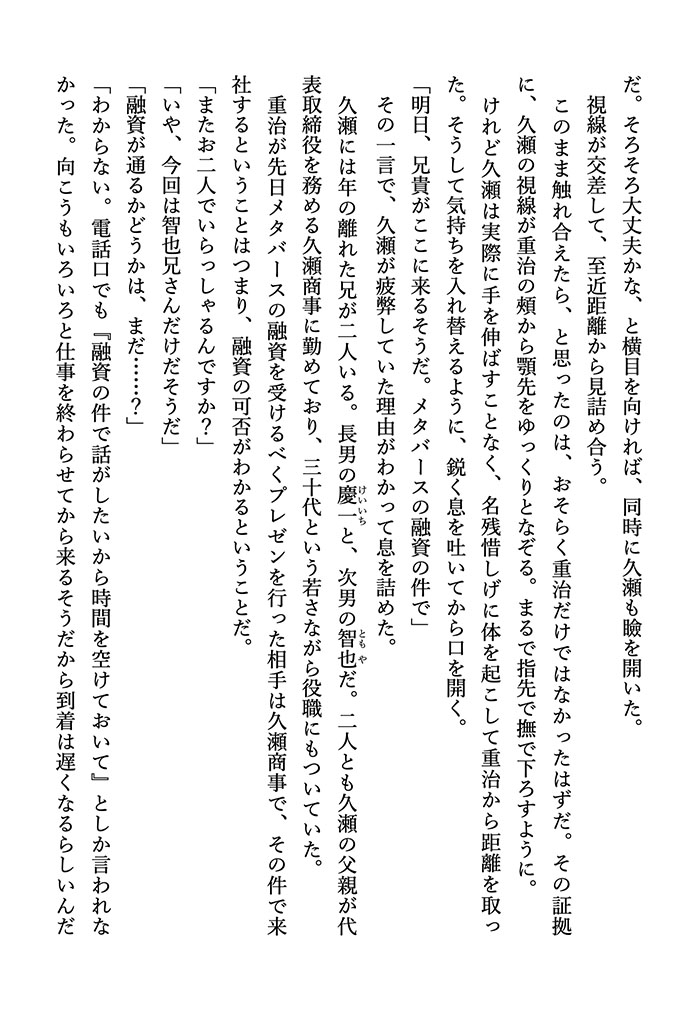 だ。そろそろ大丈夫かな、と横目を向ければ、同時に久瀬も瞼を開いた。
視線が交差して、至近距離から見詰め合う。
このまま触れ合えたら、と思ったのは、おそらく重治だけではなかったはずだ。その証拠
に、久瀬の視線が重治の頰から顎先をゆっくりとなぞる。まるで指先で撫で下ろすように。
けれど久瀬は実際に手を伸ばすことなく、名残惜しげに体を起こして重治から距離を取っ
た。そうして気持ちを入れ替えるように、鋭く息を吐いてから口を開く。
「明日、兄貴がここに来るそうだ。メタバースの融資の件で」
その一言で、久瀬が疲弊していた理由がわかって息を詰めた。
久瀬には年の離れた兄が二人いる。長男の慶一けいいちと、次男の智也ともやだ。二人とも久瀬の父親が代
表取締役を務める久瀬商事に勤めており、三十代という若さながら役職にもついていた。
重治が先日メタバースの融資を受けるべくプレゼンを行った相手は久瀬商事で、その件で来
社するということはつまり、融資の可否がわかるということだ。
「またお二人でいらっしゃるんですか？」
「いや、今回は智也兄さんだけだそうだ」
「融資が通るかどうかは、まだ……？」
「わからない。電話口でも『融資の件で話がしたいから時間を空けておいて』としか言われな
かった。向こうもいろいろと仕事を終わらせてから来るそうだから到着は遅くなるらしいんだ